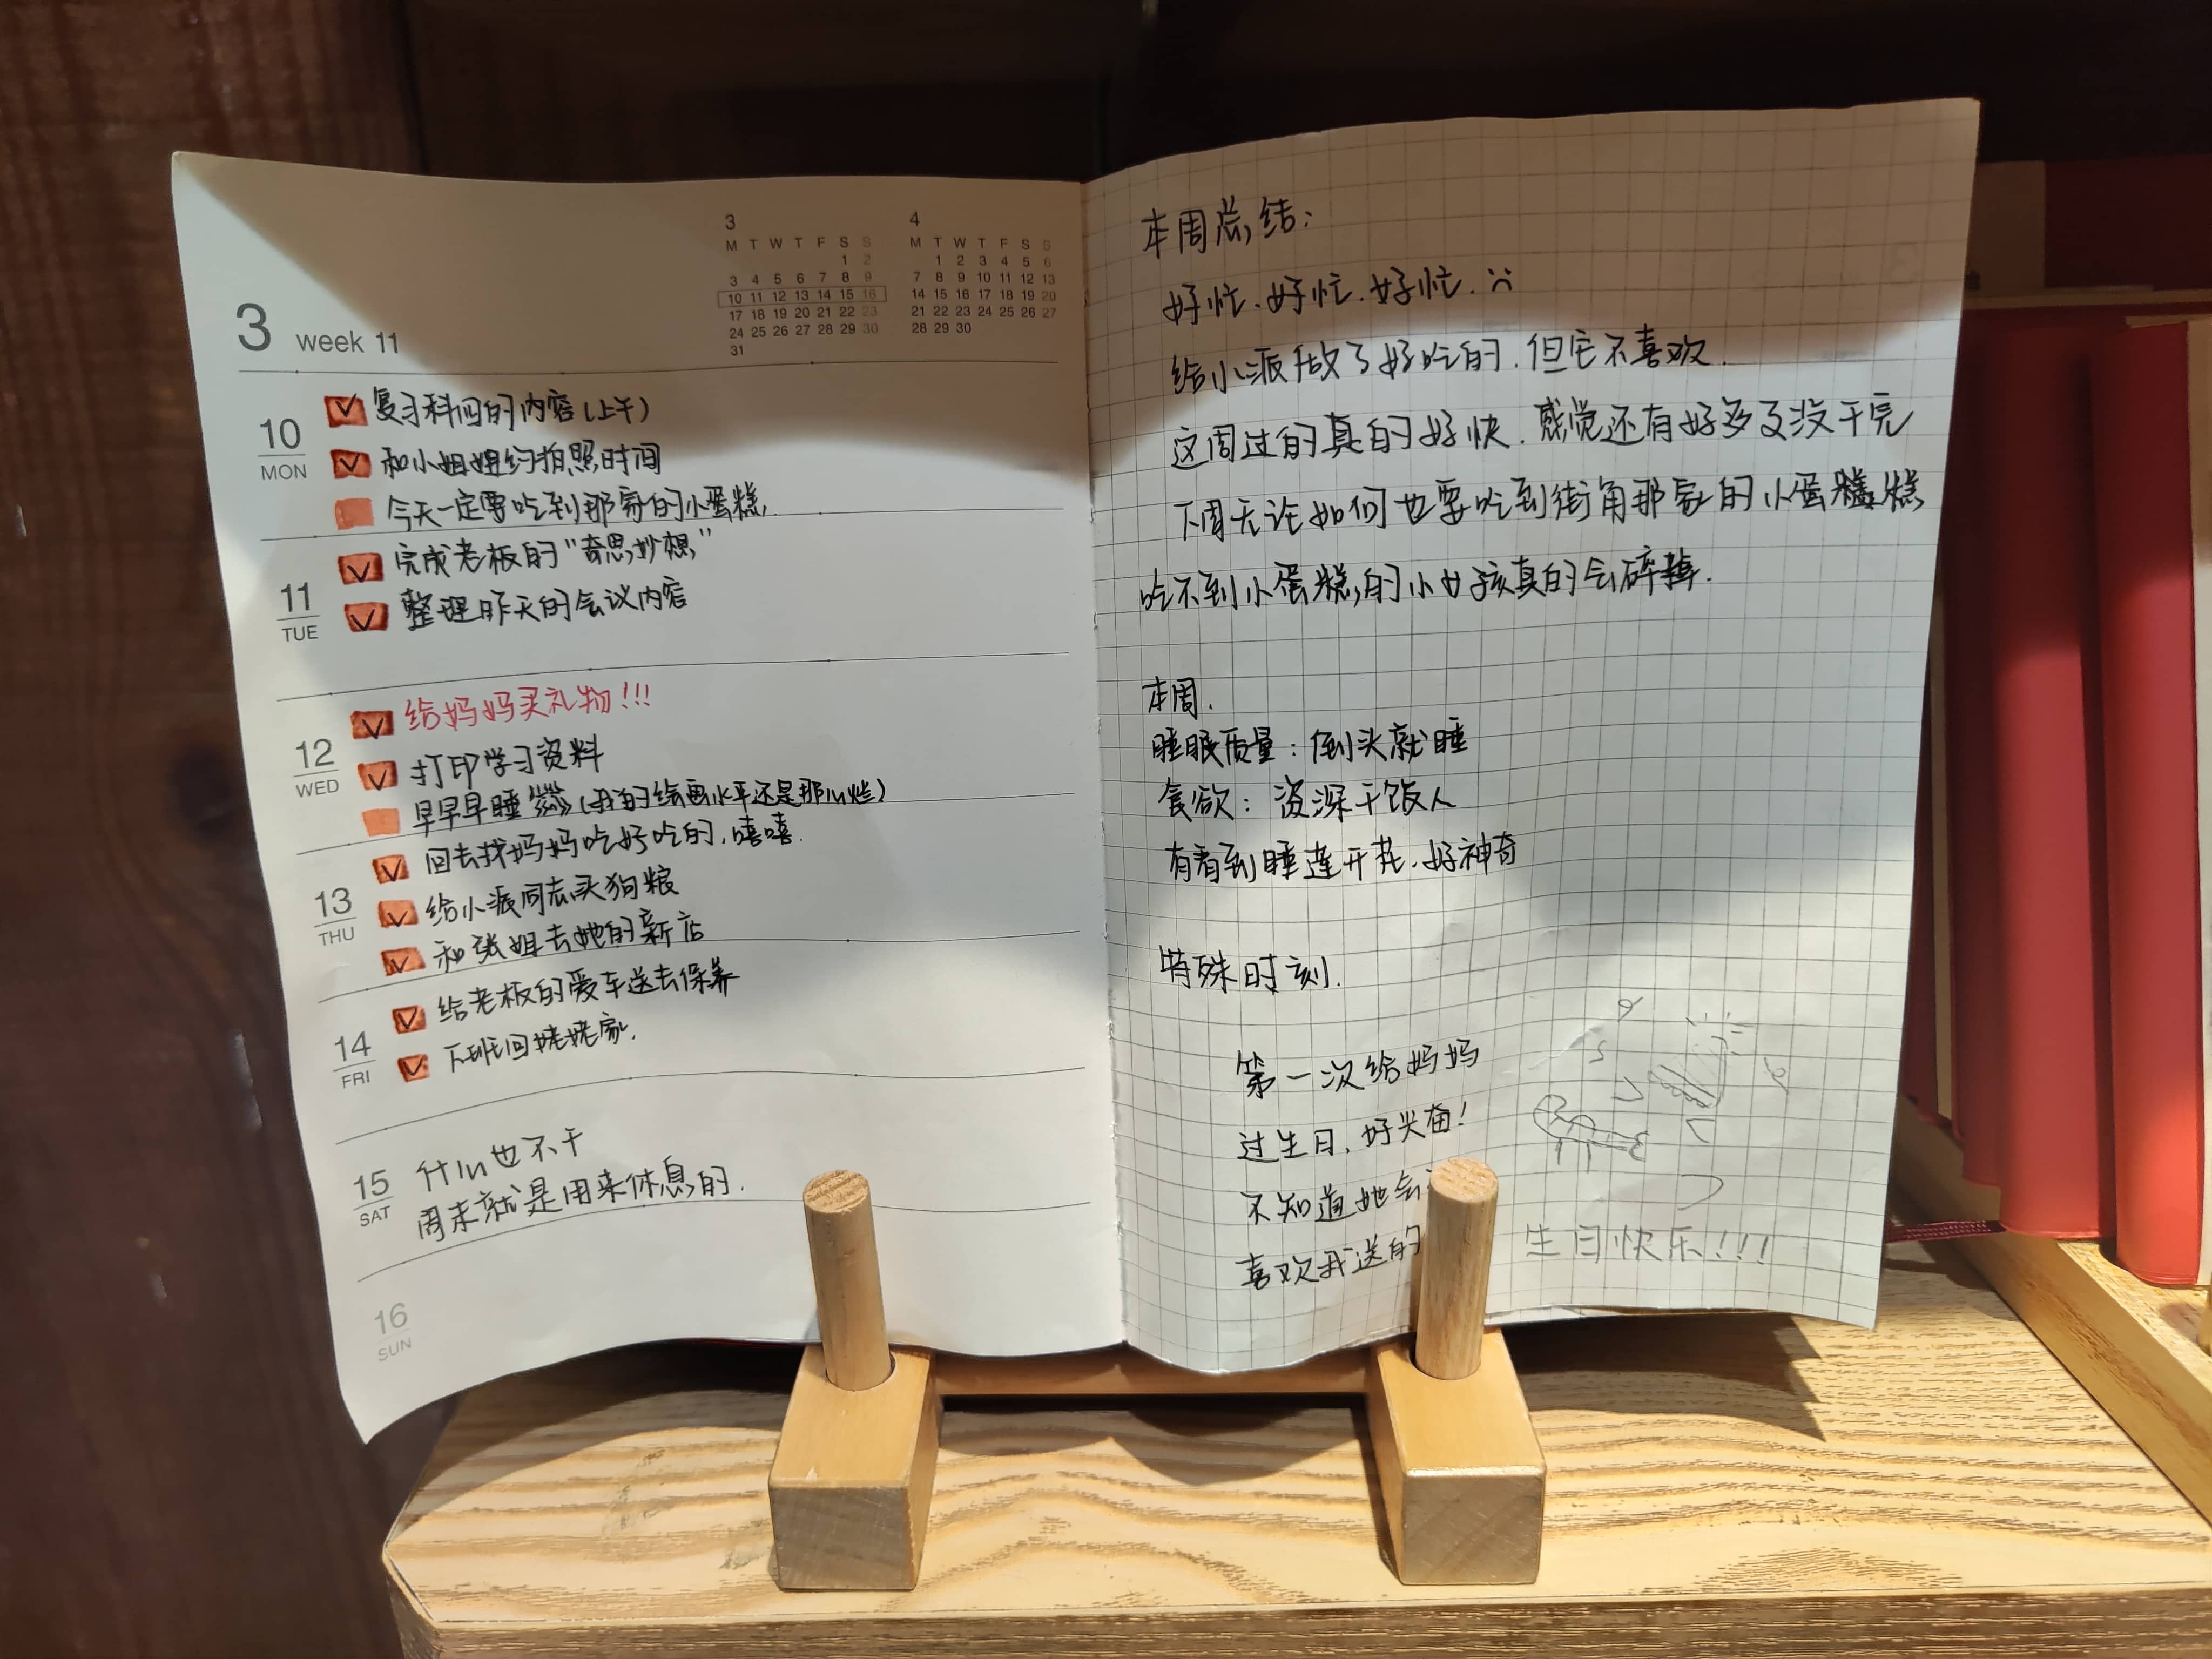 3
M T W T F S S
1 2
3 4 5 6 7 8 9
10 11 12 13 14 15 16
17 18 19 20 21 22 23
24 25 26 27 28 29 30
31
4
M T W T F S S
1 2 3 4 5 6
7 8 9 10 11 12 13
14 15 16 17 18 19 20
21 22 23 24 25 26 27
28 29 30
3 week 11
10
MON
复习科四的内容(上午)
和小姐姐约拍照时间
今天一定要吃到那家的小蛋糕.
11
TUE
完成老板的“奇思妙想”
整理昨天的会议内容
12
WED
给妈妈买礼物!!!
打印学习资料
早早早睡 (我的绘画水平还是那么烂)
13
THU
回去找妈妈吃好吃的,嘻嘻.
给小派同志买狗粮
和张姐去她的新店
14
FRI
给老板的爱车送去保养
下班回姥姥家.
15
SAT
什么也不干
周末就是用来休息的.
16
SUN
本周总结:
好忙.好忙.好忙.
给小派做了好吃的.但它不喜欢.
这周过的真的好快.感觉还有好多又没干完
下周无论如何也要吃到街角那家的小蛋糕
吃不到小蛋糕的小女孩真的会碎掉.
本周.
睡眠质量:倒头就睡
食欲:资深干饭人
有看到睡莲开花.好神奇
特殊时刻.
第一次给妈妈
过生日,好兴奋!
不知道她会
喜欢我送的
生日快乐!!!